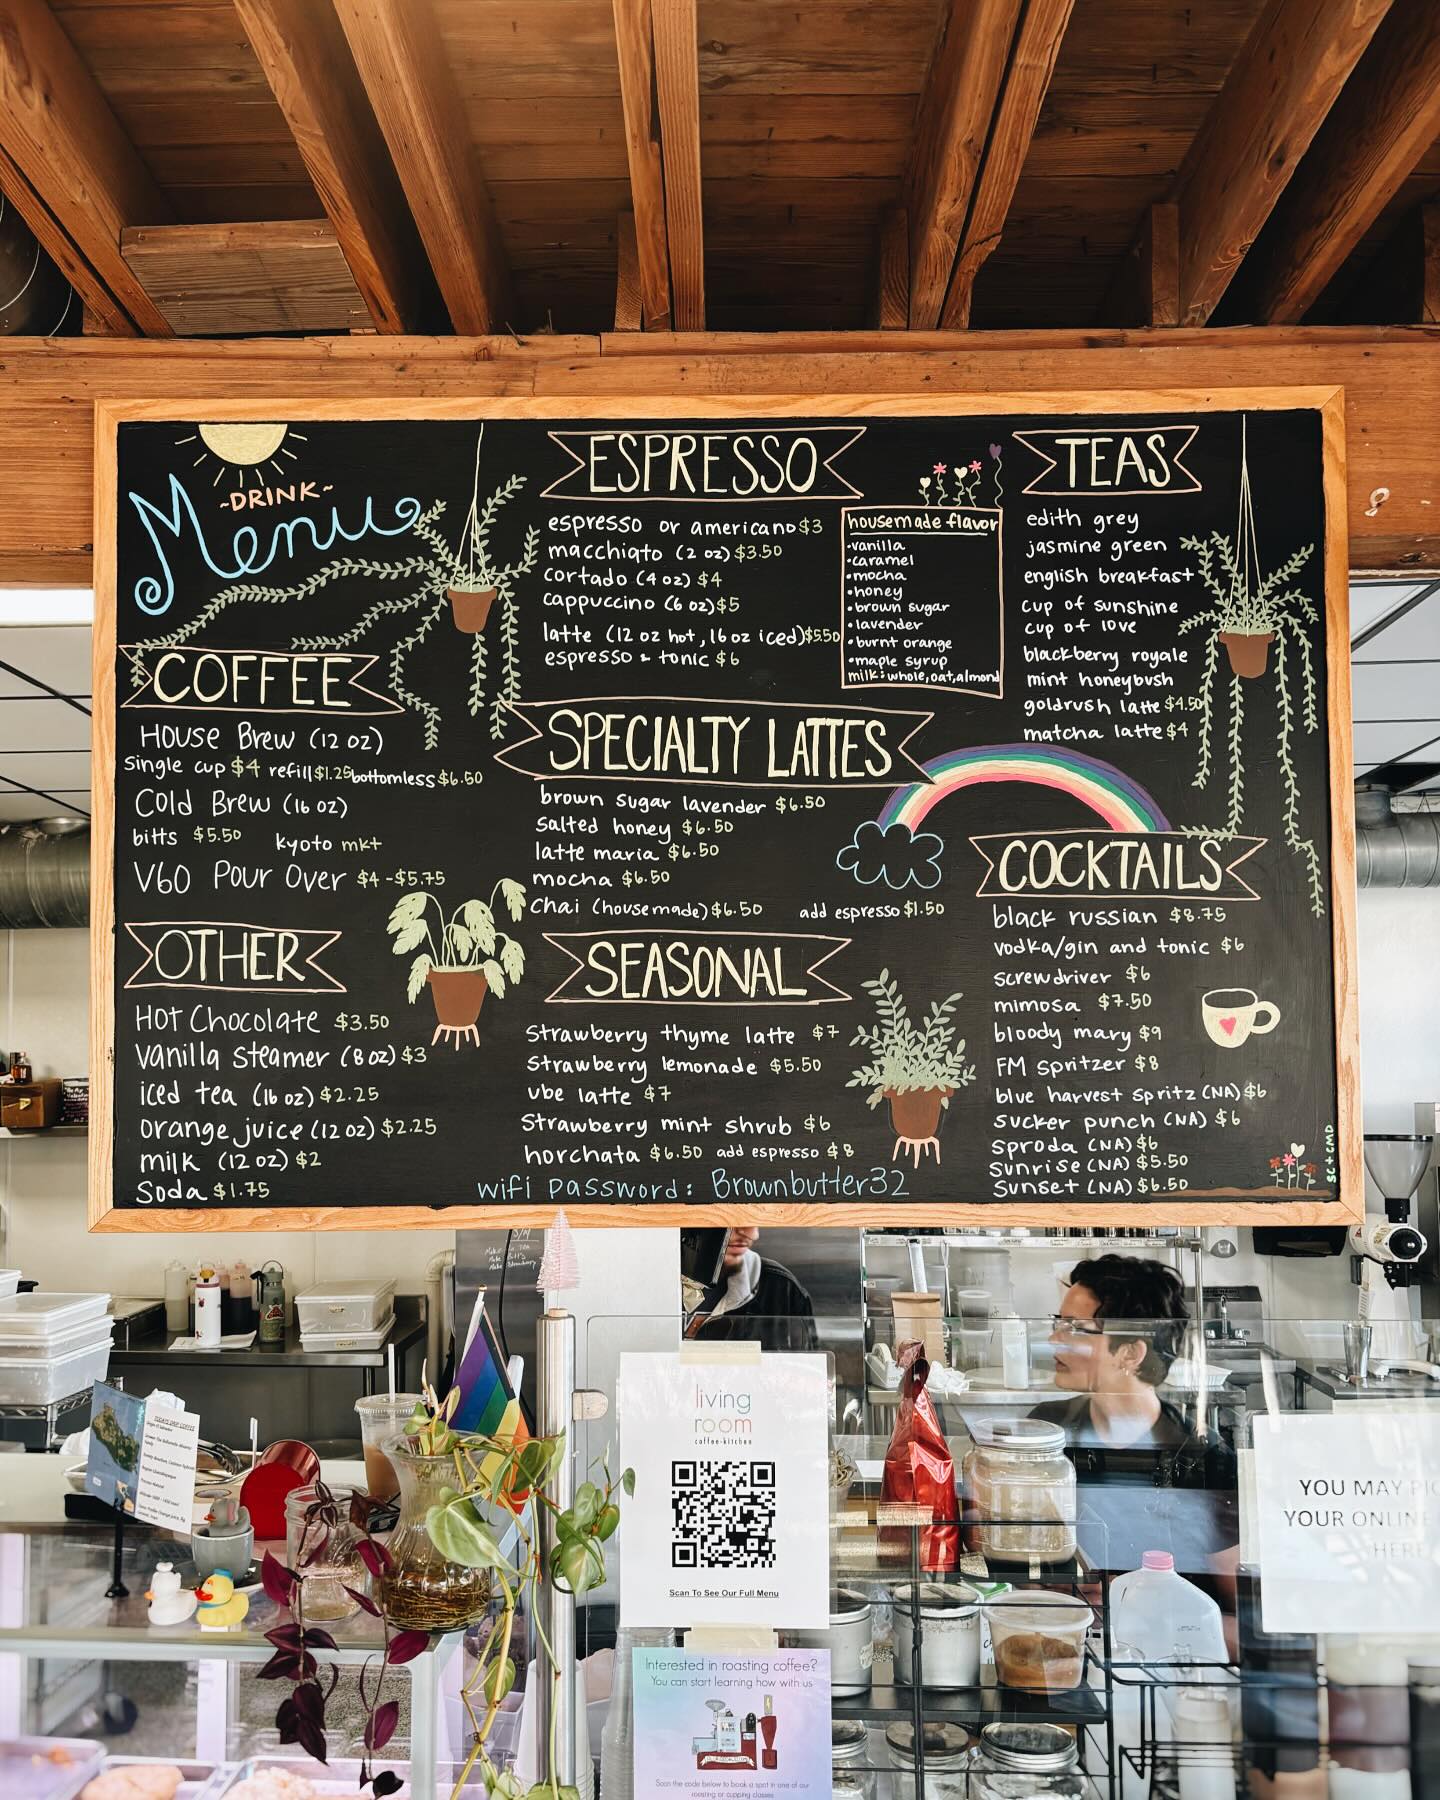 ~DRINK~
Menu
COFFEE
House Brew (12 oz)
single cup $4 refill $1.25 bottomless $6.50
Cold Brew (16 oz)
bitts $5.50 kyoto mkt
V60 Pour Over $4 - $5.75
OTHER
Hot Chocolate $3.50
Vanilla Steamer (8 oz) $3
iced tea (16 oz) $2.25
orange juice (12 oz) $2.25
milk (12 oz) $2
Soda $1.75
ESPRESSO
espresso or americano $3
macchiato (2 oz) $3.50
cortado (4 oz) $4
cappuccino (6 oz) $5
latte (12 oz hot, 16 oz iced) $5.50
espresso & tonic $6
housemade flavor
•vanilla
•caramel
•mocha
•honey
•brown sugar
•lavender
•burnt orange
•maple syrup
milk: whole, oat, almond
SPECIALTY LATTES
brown sugar lavender $6.50
salted honey $6.50
latte maria $6.50
mocha $6.50
chai (housemade) $6.50 add espresso $1.50
SEASONAL
Strawberry thyme latte $7
Strawberry lemonade $5.50
ube latte $7
Strawberry mint shrub $6
horchata $6.50 add espresso $8
wifi password: Brownbutter32
TEAS
edith grey
jasmine green
english breakfast
cup of sunshine
cup of love
blackberry royale
mint honeybush
goldrush latte $4.50
matcha latte $4
COCKTAILS
black russian $8.75
vodka/gin and tonic $6
screwdriver $6
mimosa $7.50
bloody mary $9
FM spritzer $8
blue harvest spritz (NA) $6
sucker punch (NA) $6
sproda (NA) $6
sunrise (NA) $5.50
sunset (NA) $6.50
SC + CMD
living
room
coffee + kitchen
Scan To See Our Full Menu
Interested in roasting coffee?
You can start learning how with us
Scan the code below to book a spot in one of our
roasting or cupping classes
TODAY'S DRIP COFFEE
YOU MAY
YOUR ONLINE
HERE